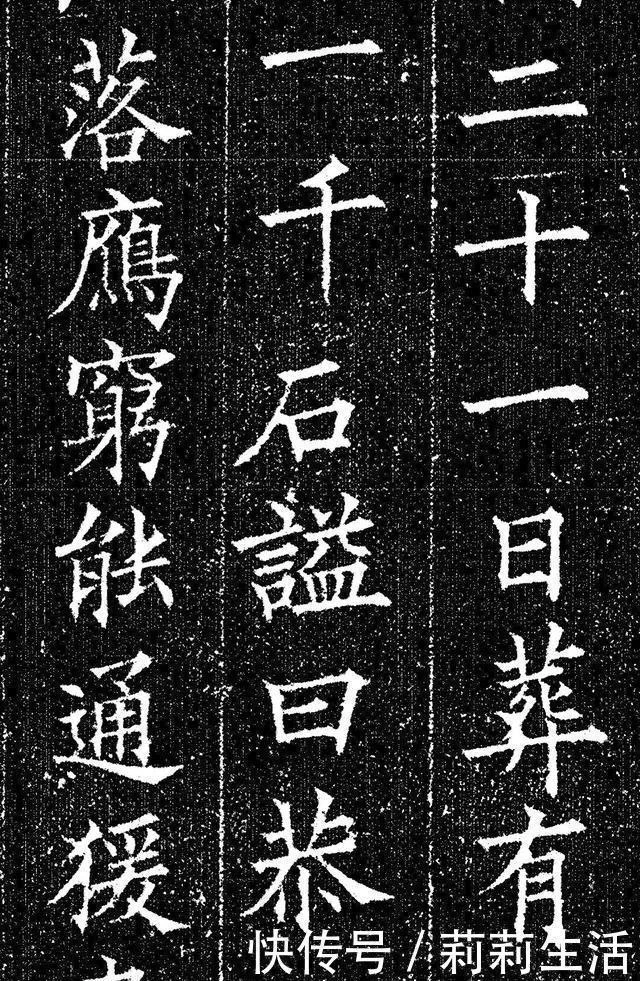 二十一日葬有
一千石謚曰恭
落鴈窮能通猨
快传号/莉莉生活